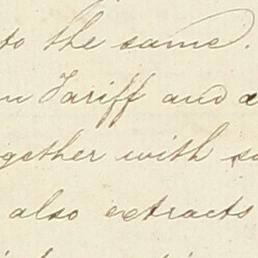 to the same.
Tariff and
together with
also extracts